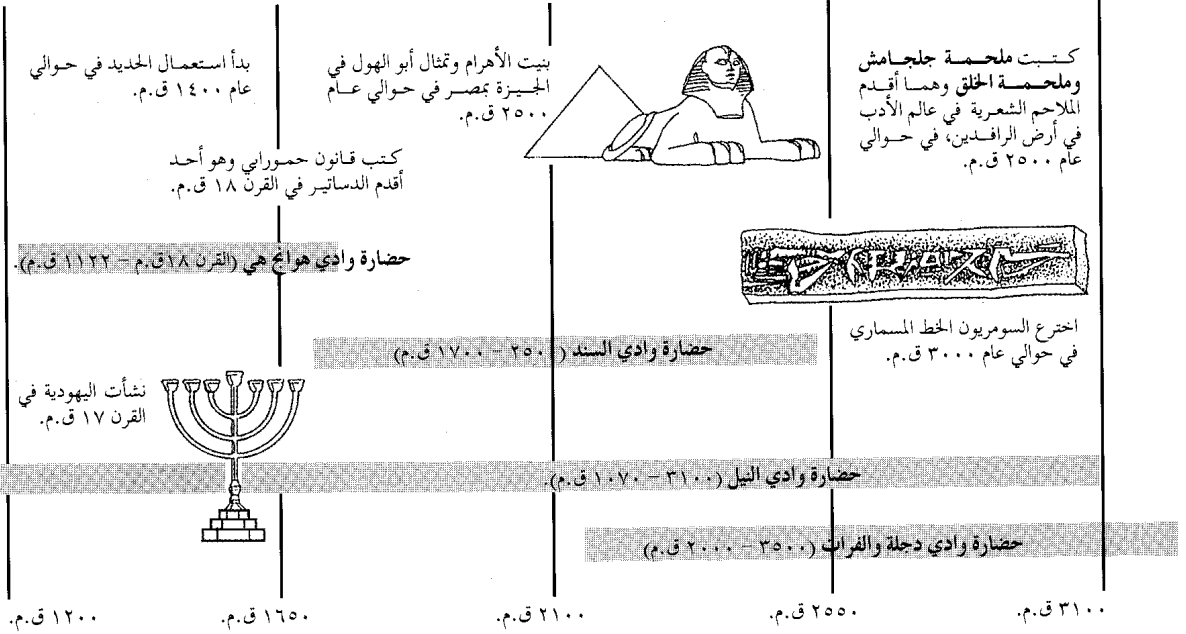 كتبت ملحمة جلجامش
وملحمة الخلق وهما أقدم
الملاحم الشعرية في عالم الأدب
في أرض الرافدين، في حوالي
عام ٢٥٠٠ ق.م.
بنيت الأهرام وتمثال أبو الهول في
الجيزة بمصر في حوالي عام
٢٥٠٠ ق.م.
بدأ استعمال الحديد في حوالي
عام ١٤٠٠ ق.م.
كتب قانون حمورابي وهو أحد
أقدم الدساتير في القرن ١٨ ق.م.
حضارة وادي هوانج هي (القرن ١٨ق.م – ١١٢٢ ق.م).
اخترع السومريون الخط المسماري
في حوالي عام ٣٠٠٠ ق.م.
حضارة وادي السند (٢٥٠٠ – ١٧٠٠ ق.م)
نشأت اليهودية في
القرن ١٧ ق.م.
حضارة وادي النيل (٣١٠٠ – ١٠٧٠ ق.م).
حضارة وادي دجلة والفرات (٣٥٠٠ – ٢٠٠٠ ق.م)
٣١٠٠ ق.م.
٢٥٥٠ ق.م.
٢١٠٠ ق.م.
١٦٥٠ ق.م.
١٢٠٠ ق.م.